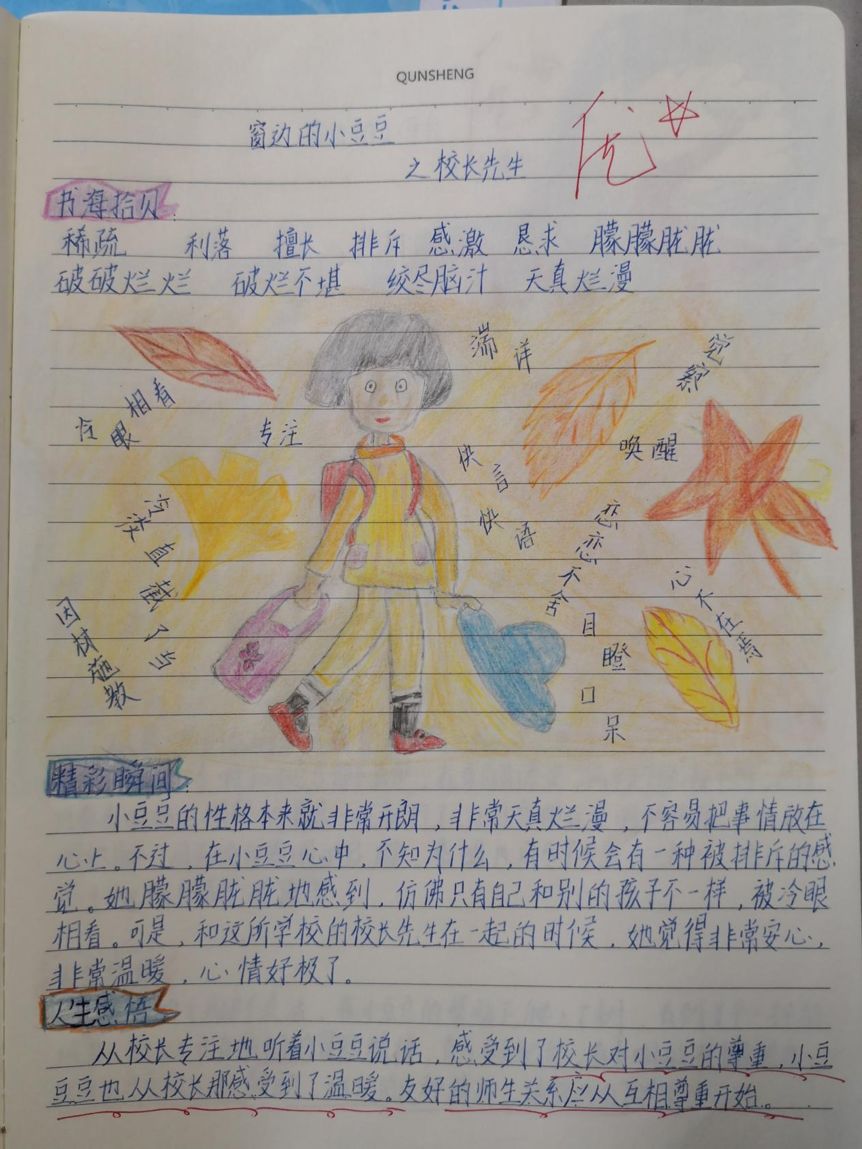 QUNSHENG
窗边的小豆豆
之校长先生
优
书海拾贝:
稀疏 利落 擅长 排斥 感激 恳求 朦朦胧胧
破破烂烂 破烂不堪 绞尽脑汁 天真烂漫
端详
觉察
冷眼相看
专注
快言快语
唤醒
直截了当
恋恋不舍
心不在焉
因材施教
目瞪口呆
精彩瞬间:
小豆豆的性格本来就非常开朗,非常天真烂漫,不容易把事情放在
心上。不过,在小豆豆心中,不知为什么,有时候会有一种被排斥的感
觉。她朦朦胧胧地感到,仿佛只有自己和别的孩子不一样,被冷眼
相看。可是,和这所学校的校长先生在一起的时候,她觉得非常安心,
非常温暖,心情好极了。
人生感悟
从校长专注地听着小豆豆说话,感受到了校长对小豆豆的尊重,小豆
豆豆也从校长那感受到了温暖。友好的师生关系应从互相尊重开始。